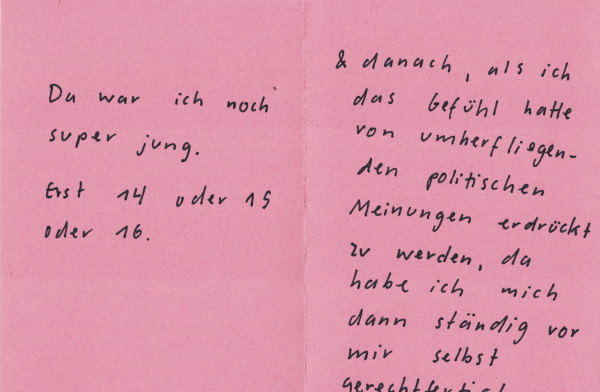 Da war ich noch
super jung.
Erst 14 oder 15
oder 16.
& danach, als ich
das Gefühl hatte
von umherfliegen-
den politischen
Meinungen erdrückt
zu werden, da
habe ich mich
dann ständig vor
mir selbst
gerechtfertigt